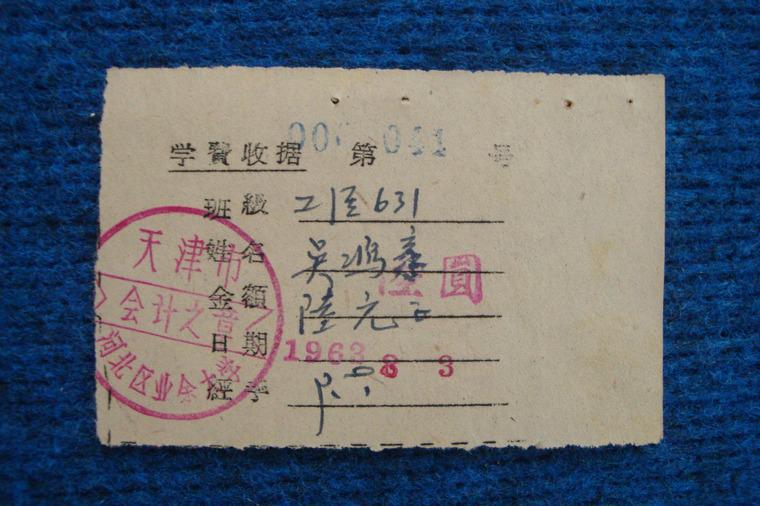 学費收据 第 041 号
班級 工匠631
姓名 吴鸿
金額 陸元正
陸圓
日期 1963 8 3
經手
天津市
会计之章
河北区业余